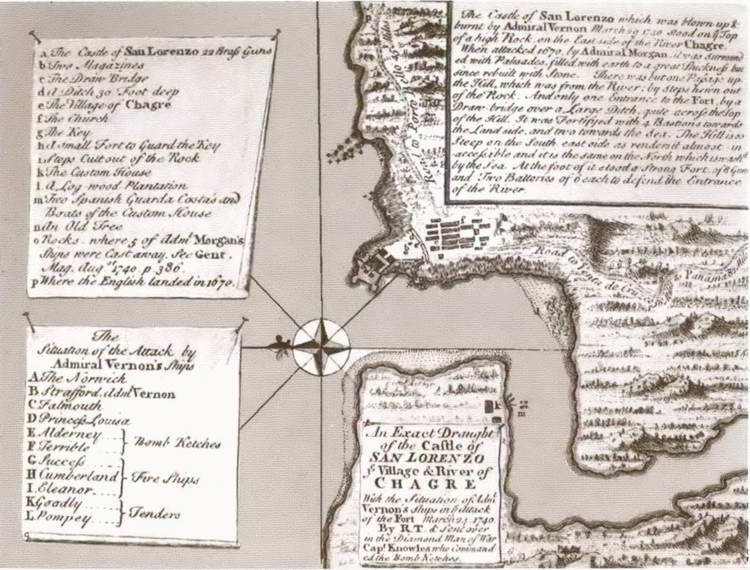 a The Castle of San Lorenzo 22 Brass Guns
b Two Magazines
c The Draw Bridge
d A Ditch 30 Foot deep
e The Village of Chagre
f The Church
g The Key
h A small Fort to Guard the Key
i Steps Cutt out of the Rock
k The Custom House
l A Log wood Plantation
m Two Spanish Guarda Costa's and
Boats of the Custom House
n An Old Tree
o Rocks where 5 of Adml Morgan's
Ships were Cast away. See Gent.
Mag. Augst 1740. p. 386.
p Where the English landed in 1670.
The
Situation of the Attack by
Admiral Vernon's Ships
A The Norwich
B Strafford Adml Vernon
C Falmouth
D Princess Louisa
E Alderney
F Terrible
Bomb Ketches
G Success
H Cumberland
I Eleanor
Fire Ships
K Goodly
L Pompey
Tenders
The Castle of San Lorenzo which was blown up &
burnt by Admiral Vernon March 29 1740 stood on ye Top
of a high Rock, on the East side of the River Chagre.
When attacked 1670. by Admiral Morgan, it was surround
ed with Palisades, filled with earth to a great thickness but
since rebuilt with Stone. There was but one Passage up
the Hill, which was from the River; by steps hewn out
of the Rock. And only one Entrance to the Fort, by a
Draw bridge over a Large Ditch, quite across the Top
of the Hill. It was Fortifyed with 4 Bastions towards
the Land side, and two towards the Sea. The Hill is so
Steep on the South east side as render it almost in
accessible and it is the same on the North which is washt
by the Sea. At the foot of it stood a Strong Fort, of 8 Guns
and Two Batteries of 6 each to defend the Entrance
of the River
Road to Porto Bello
Road to Venta de Cruzes
Panama
p
k
m
An Exact Draught
of the Castle of
SAN LORENZO
ye Village & River of
CHAGRE
With the Situation of Adml
Vernon's Ships in ye Attack
of the Fort March 24. 1740.
By R.T. & Sent over
in the Diamond Man of War
Capt Knowles who Command
ed the Bomb Ketches.